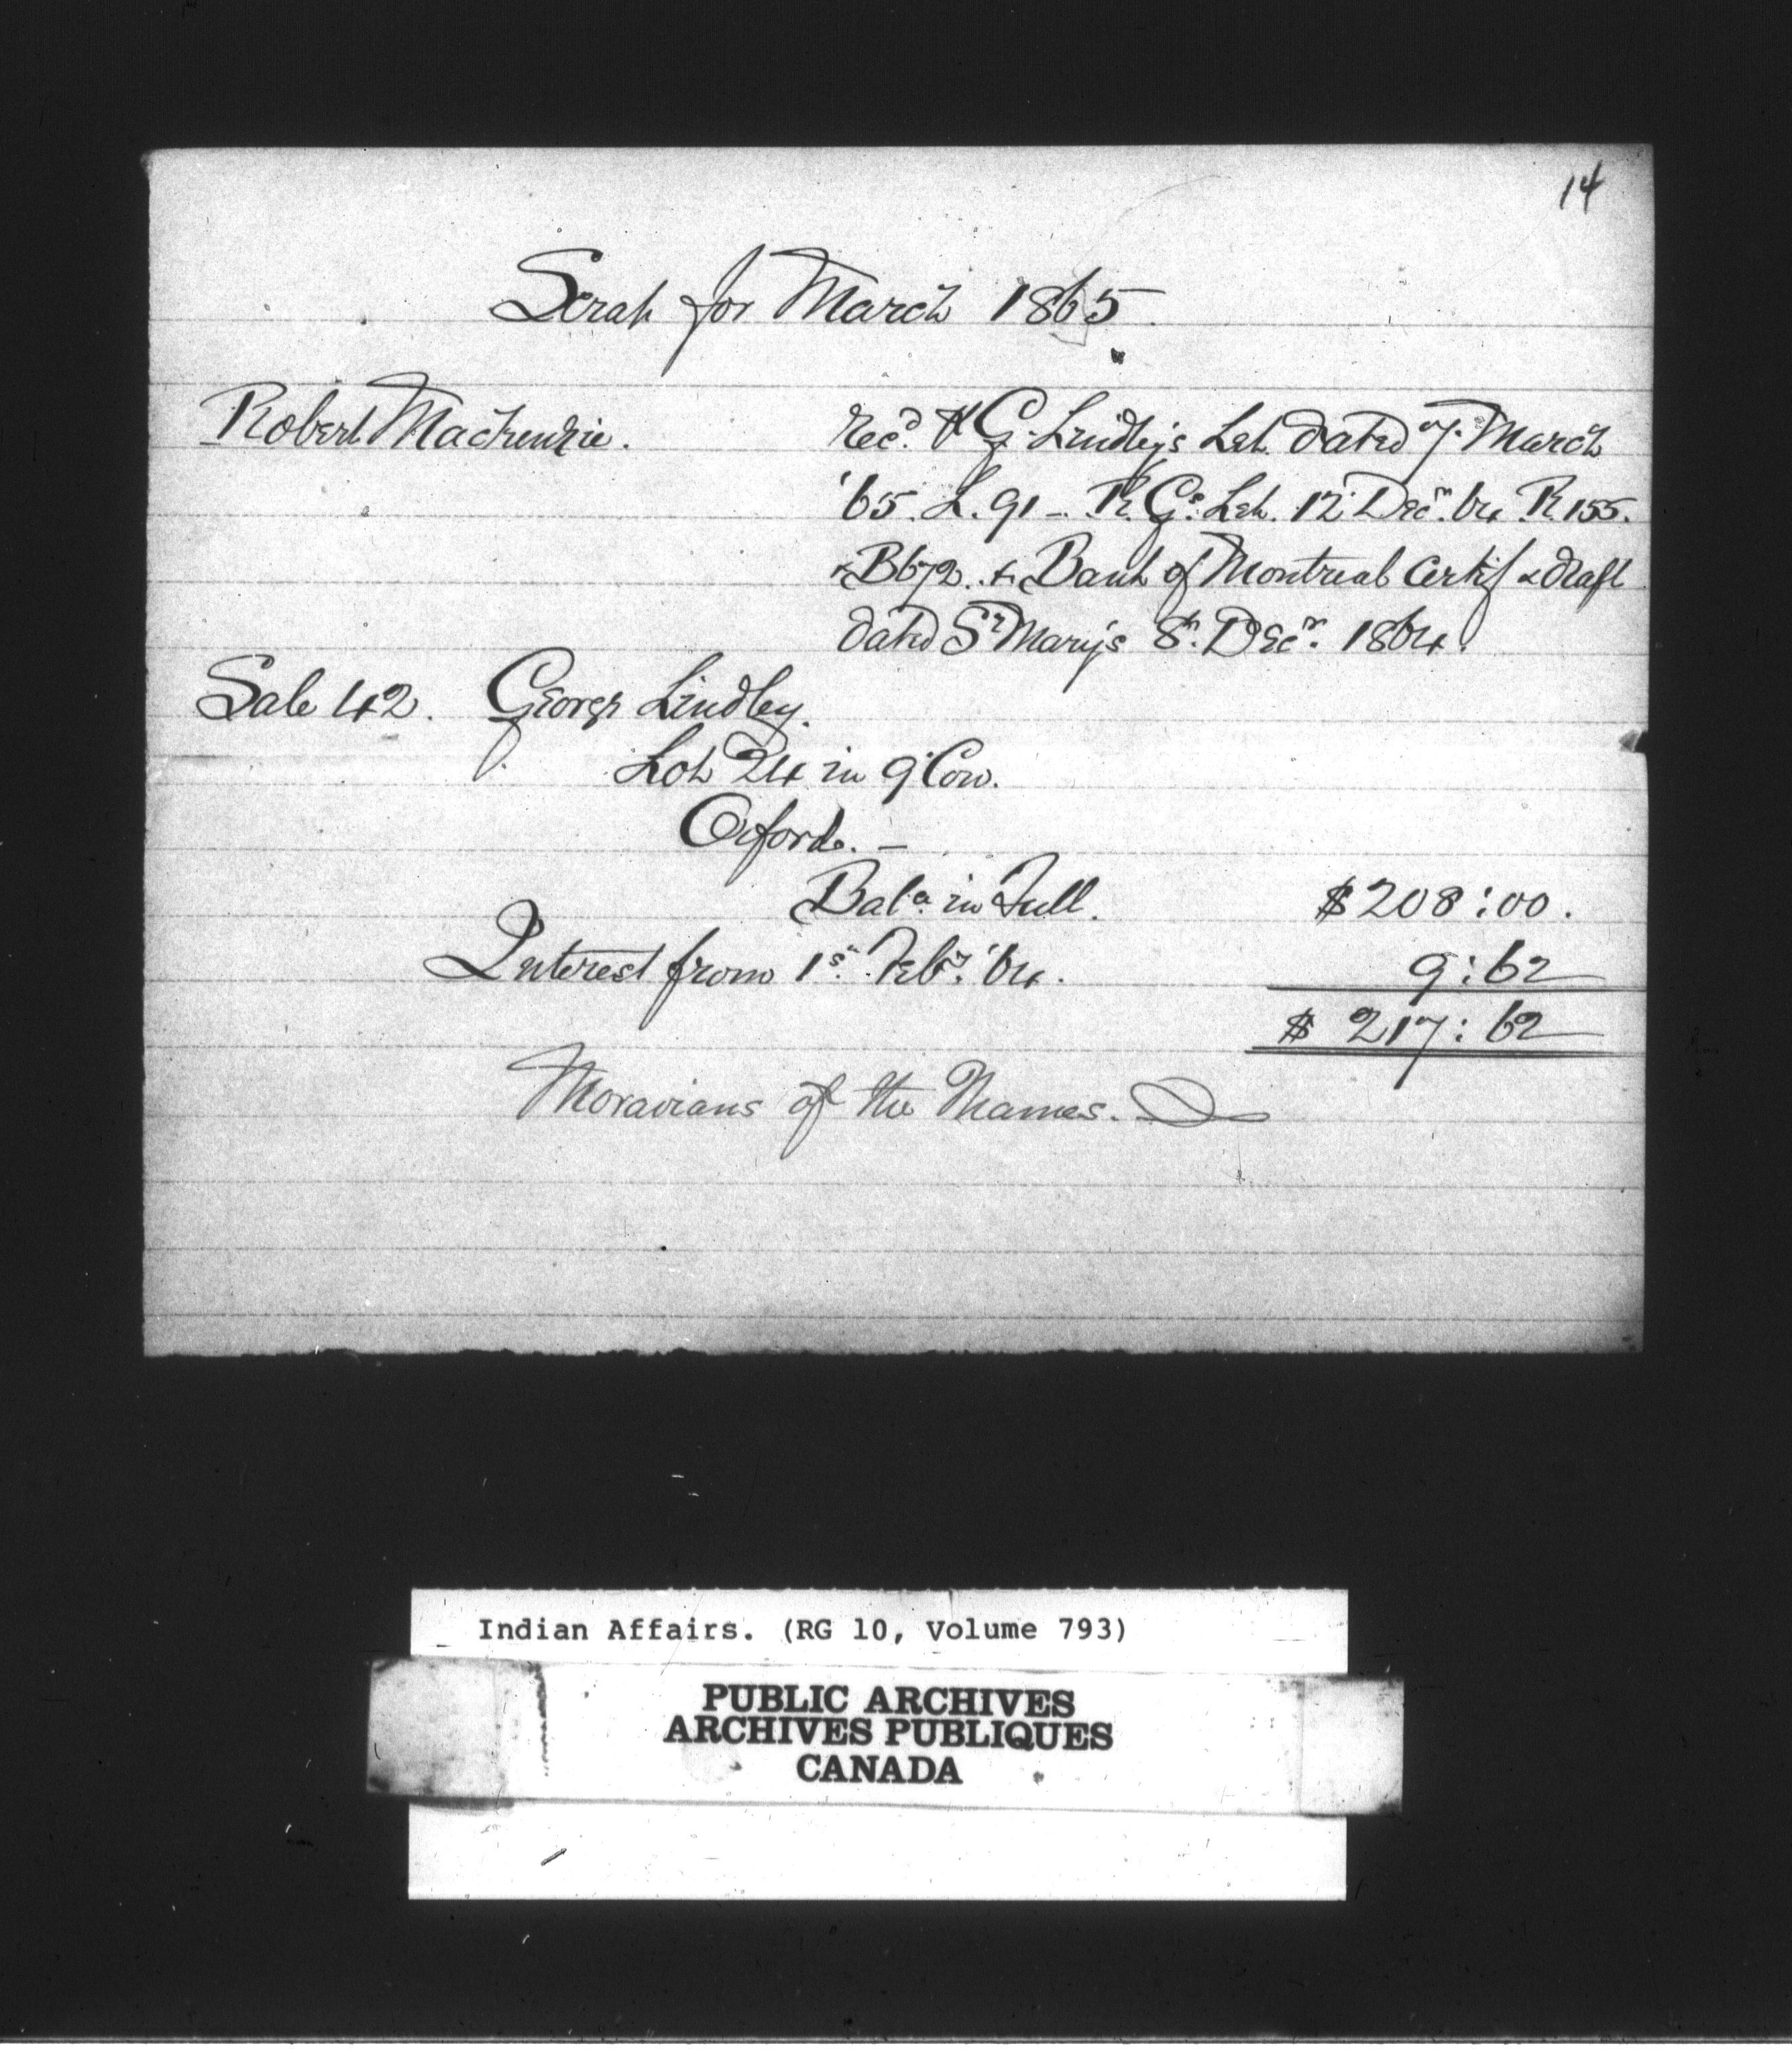 14
Scrap for March 1865.
Robert Mackenzie.
Recd. G. Lindley's Let. dated 7. March
'65. L. 91 - R. Gs. Let. 12 Decr. 64 R. 155.
& B672. & Bank of Montreal Certif & draft
dated St Mary's 8th. Decr. 1864.
Sale 42. George Lindley.
Lot 24 in 9 Con.
Orford. -
Bale. in Full. $208:00.
Interest from 1st. Feby. '64. 9:62
$217:62
Moravians of the Thames.
Indian Affairs. (RG 10, Volume 793)
PUBLIC ARCHIVES
ARCHIVES PUBLIQUES
CANADA